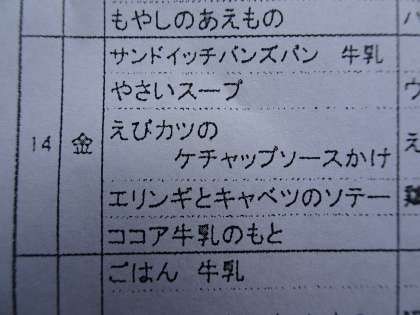 もやしのあえもの
サンドイッチバンズパン　牛乳
やさいスープ
14 金 えびカツの
ケチャップソースかけ
エリンギとキャベツのソテー
ココア牛乳のもと
ごはん　牛乳